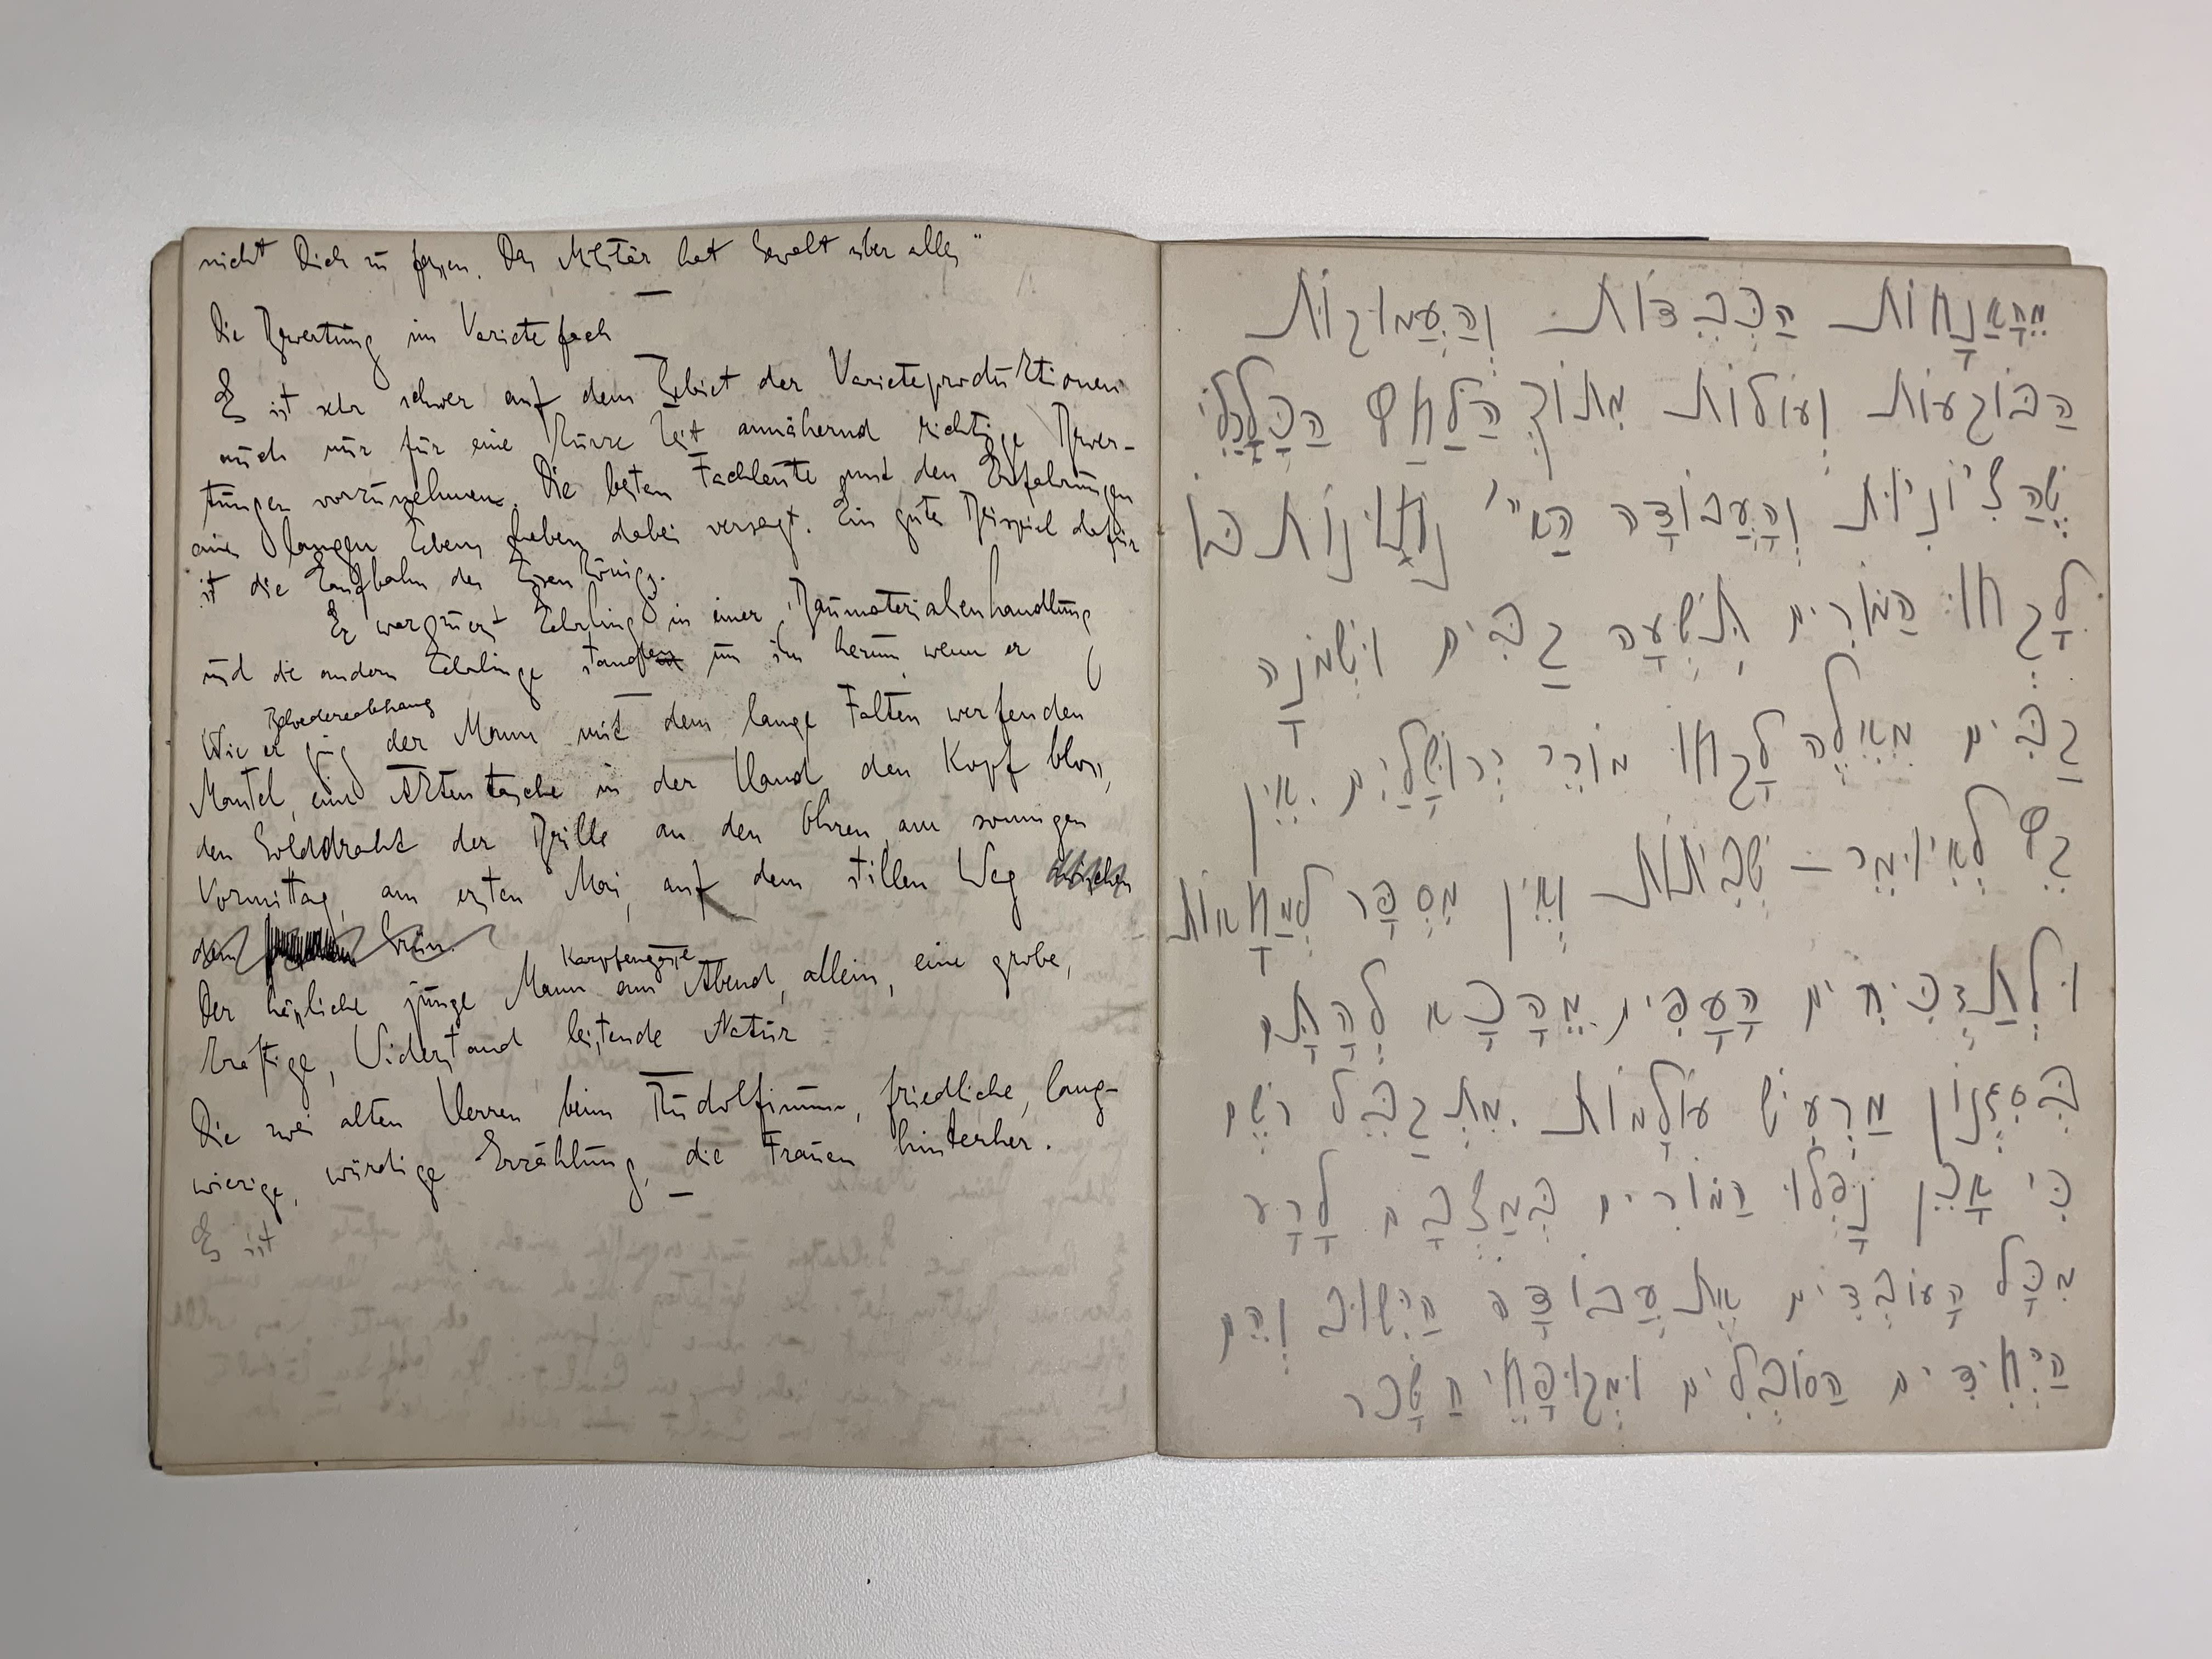 nicht Dich zu fassen. Das Militär hat Gewalt über alles"
Die Bewertung im Varietefach
Es ist sehr schwer auf dem Gebiet der Varieteproduktionen
auch nur für eine kurze Zeit annähernd richtige Bewer-
tungen vorzunehmen. Die besten Fachleute mit den Erfahrungen
eines langen Lebens haben dabei versagt. Ein gutes Beispiel dafür
ist die Laufbahn des Eisenkönigs.
Er war zuerst Lehrling in einer Baumaterialienhandlung
und die andern Lehrlinge standen um ihn herum wenn er
Belvedereabhang
Wie er ging der Mann mit dem lange Falten werfenden
Mantel, eine Aktentasche in der Hand den Kopf bloss,
den Golddraht der Brille an den Ohren, am sonnigen
Vormittag, am ersten Mai, auf dem stillen Weg zwischen
dem Grün.
Karpfengasse
Der hässliche junge Mann am Abend, allein, eine grobe,
kräftige, Widerstand leistende Natur
Die zwei alten Herren beim Rudolfinum, friedliche, lang-
wierige, würdige Erzählung, die Frauen hinterher.
Es ist
מֵהָאֲנָחוֹת הַכְּבֵדוֹת וְהָעֲמוּקוֹת
הַבּוֹקְעוֹת וְעוֹלוֹת מִתּוֹךְ הַלַּחַץ הַכַּלְכָּלִי
שֶׁהַצִּיּוֹנִיּוּת וְהָעֲבוֹדָה הַא״י נְתוּנוֹת בּוֹ
לָקְחוּ הַמּוֹרִים תִּשְׁעָה קַבִּים וּשְׁמֹנָה
קַבִּים מֵאֵילֶּה לָקְחוּ מוֹרֵי יְרוּשָׁלַיִם. אֵין
קֵץ לְאִיּוּמֵי – שְׁבִיתוֹת וְאֵין מִסְפָּר לִמְחָאוֹת
וּלְאַדְכִּיחִים הָעָפִים מֵהָכָא לְהָתָם
בְּסִגְנוֹן מַרְעִישׁ עוֹלָמוֹת. מִתְקַבֵּל רֹשֶׁם
כִּי אָכֵן נָפְלוּ הַמּוֹרִים בְּמַצָּבָם לָרָע
מִכָּל הָעוֹבְדִים אֶת עֲבוֹדַת הַיִּשּׁוּב וְהֵם
הַיְחִידִים הַסּוֹבְלִים וּמְקוּפָּחֵי הַשָּׂכָר